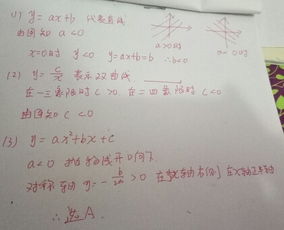 (1) y = ax+b 代表直线
由图知 a<0
a>0时
a<0时
x=0时 y<0 y=ax+b=b ∴b<0
(2) y= c/x 表示双曲线
在一三象限时 C>0 在二四象限时 C<0
由图知 C<0
(3) y = ax²+bx+c
a<0 抛物线开口向下
对称轴 y=-b/2a >0 在y轴右侧
∴选A